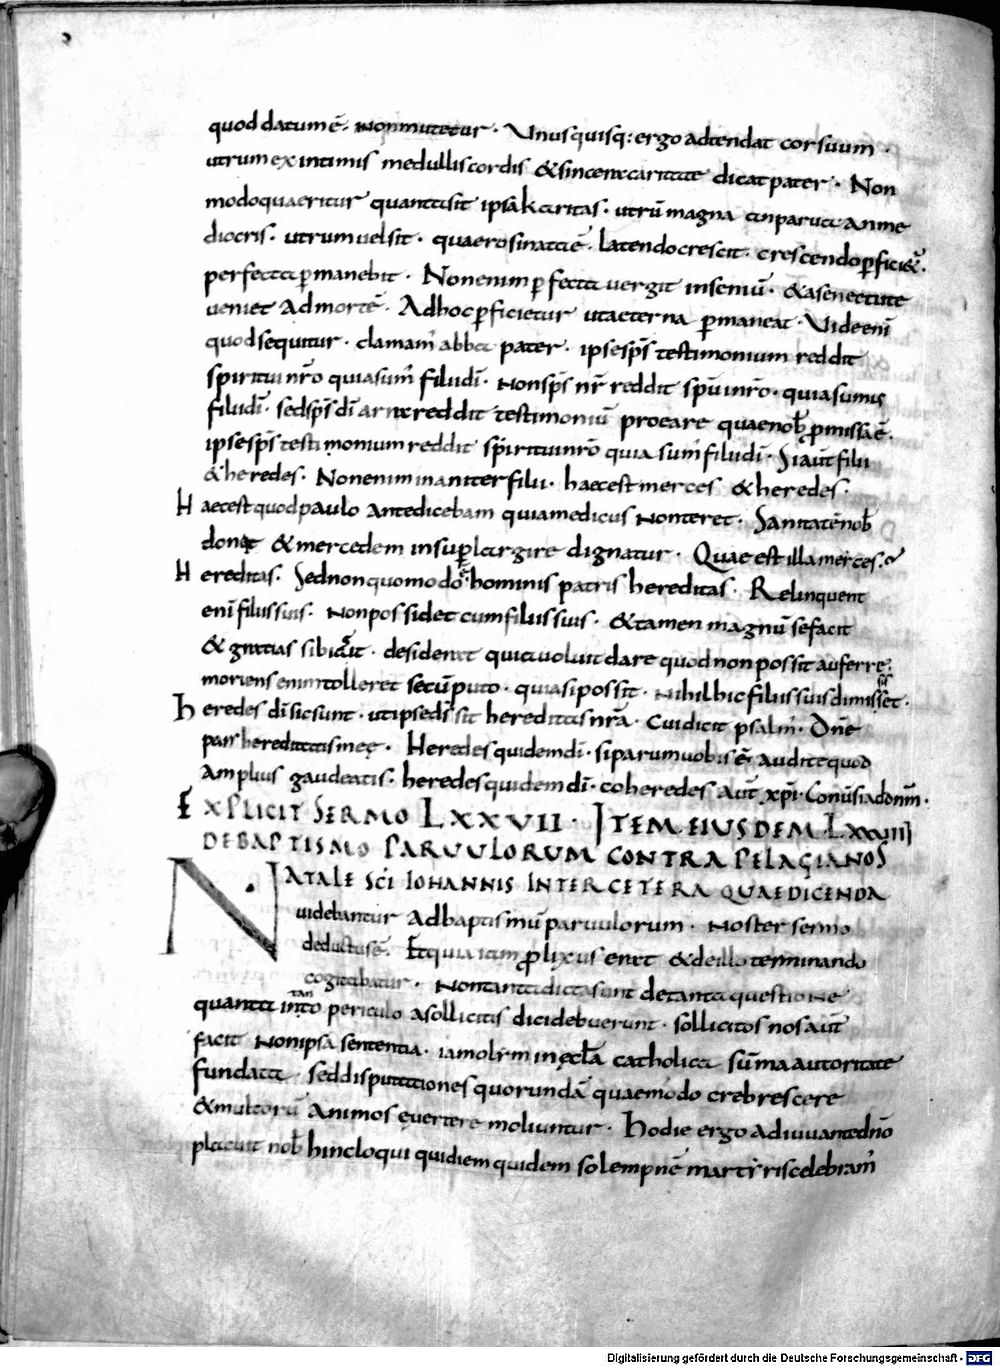 quod datum ē. Non mutetur. Unusquisq: ergo adtendat cor suum.
utrum ex intimis medullis cordis & sincera caritate dicat pater. Non
modo quaeritur quanta sit ipsa karitas. utrū magna an parva an me
diocris. utrum vel sit. quaero si nata ē. latendo crescit. crescendo perfici&.
perfecta permanebit. Non enim perfecta vergit in seniū. & a senectute
veniet ad mortē. Ad hoc perficietur ut aeterna permaneat. Vide enī
quod sequitur. clamam' abba pater. ipse sps̄ testimonium reddit
spiritui nr̄o quia sum' filii dī. Non sps̄ nr̄ reddit spū inr̄o. quia sumus
filii dī. sed sps̄ dī arra reddit testimoniū pro ea re quae nob̄ promissa ē.
ipse sps̄ testimonium reddit spiritui nr̄o quia sum' filii dī. Si aut̄ filii
& heredes. Non enim inaniter filii. haec est merces & heredes.
Haec est quod paulo ante dicebam quia medicus Non teret. Sanitatē nob̄
donat & mercedem insuper largire dignatur. Quae est illa merces?
Hereditas. Sed non quomodo hominis patris hereditas. Relinquent
enī filiis suis. Non possidet cum filiis suis. & tamen magnū se facit
& gratias sibi desideret quia voluit dare quod non possit auferre.
moriens enim tolleret secū puto. quia si possit. Nihil hic filiis suis dimisset.
heredes dī sic sunt. ut ipse ds̄ sit hereditas nr̄a. Cui dicit psalm'. Dn̄e
pars hereditatis meę. Heredes quidem dī. si parum vobis ē audite quod
Amplius gaudeatis. heredes quidem dī. coheredes aut̄ xpī. Conv̄si ad dnm̄.
EXPLICIT SERMO LXXVII. ITEM EIUSDEM LXXVIII
DE BAPTISMO PARVULORUM CONTRA PELAGIANOS
NATALE SC̄I IOHANNIS INTER CETERA QUAE DICENDA
videbantur Ad baptismū parvulorum. Noster sermo
deductus ē. Et quia iam prolixus erat & de illo terminando
cogitabatur. Non tanta dicta sunt de tanta questione
quanta in tanto periculo a sollicitis dici debuerunt. sollicitos nos aut̄
facit Non ipsa sententia. iam olim in ęcl̄a catholica sūma autoritate
fundata. sed disputationes quorundā quae modo crebrescere
& multorū Animos evertere moliuntur. hodie ergo adiuvante dn̄o
placuit nob̄ hinc loqui quidiem quidem solempnē martyris celebram'
Digitalisierung gefördert durch die Deutsche Forschungsgemeinschaft · DFG